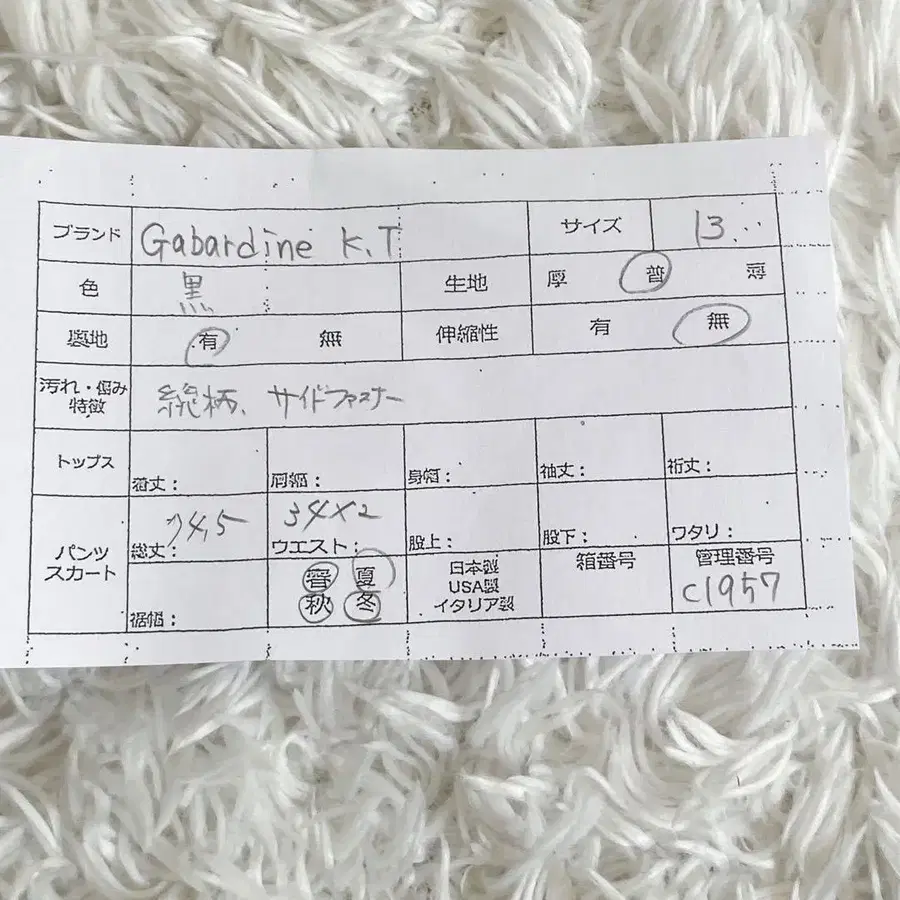 ブランド Gabardine K.T サイズ 13
色 黒 生地 厚 普 薄
裏地 有 無 伸縮性 有 無
汚れ・傷み
特徴 総柄、サイドファスナー
トップス 着丈: 肩幅: 身幅: 袖丈: 裄丈:
パンツ
スカート
74,5 34×2
総丈: ウエスト: 股上: 股下: ワタリ:
裾幅:
春 夏
秋 冬
日本製
USA製
イタリア製
箱番号
管理番号
C1957